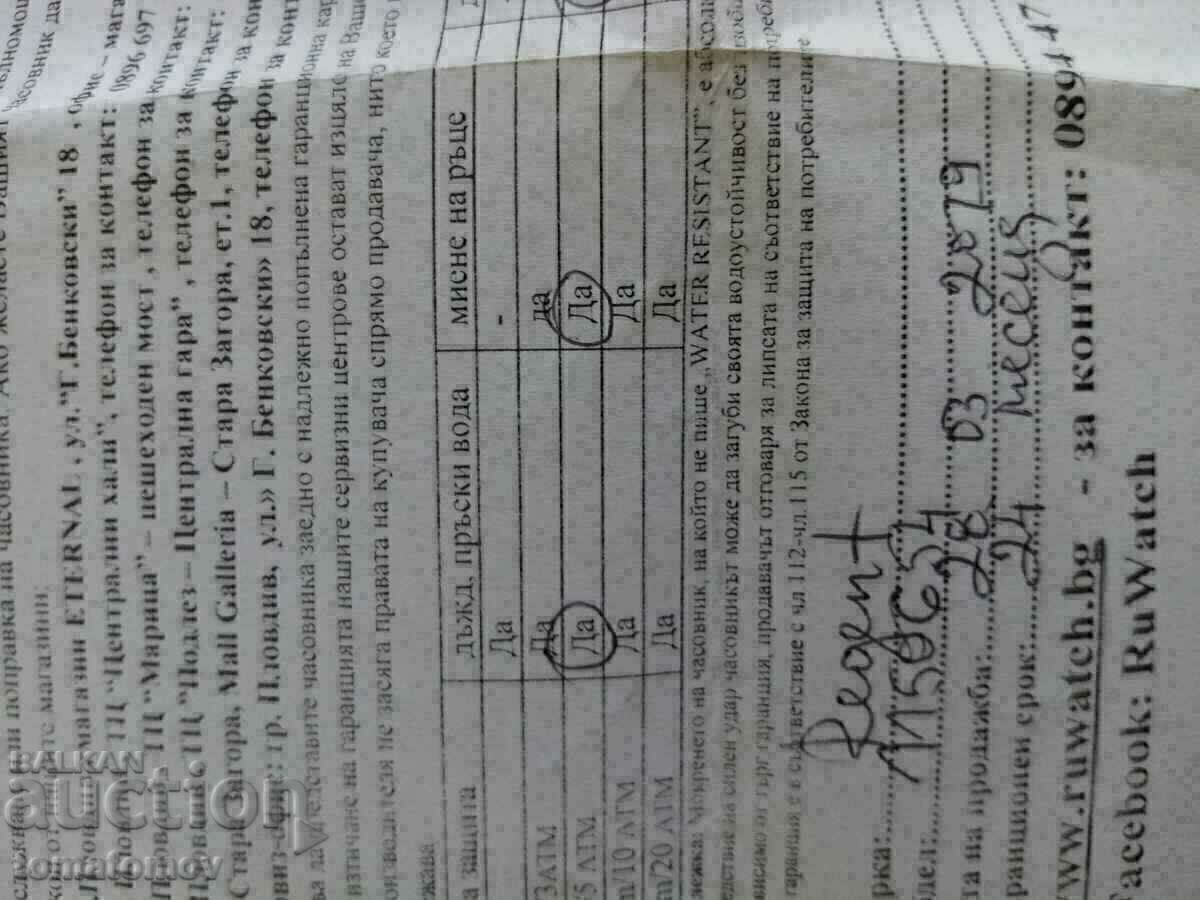 поправка на часовника. Ако желаете Вашият часовник да
магазини:
магазин ETERNAL, ул."Г.Бенковски" 18, офис – мага
ТЦ "Централни хали", телефон за контакт: 0896 697
ТЦ "Марица" – пешеходен мост, телефон за контакт:
Пловдив, ТЦ "Подлез – Централна гара", телефон за контакт:
Стара Загора, Mall Galleria – Стара Загора, ет.1, телефон за кон
гр. Пловдив, ул.» Г. Бенковски» 18, телефон за конт
представите часовника заедно с надлежно попълнена гаранционна кар
изтичане на гаранцията нашите сервизни центрове остават изцяло на Ваше
производителя не засяга правата на купувача спрямо продавача, нито което
жава
а защита дъжд, пръски вода мисне на ръце
Да -
/3АТМ Да да
/5 АТМ Да Да
m/10 АТМ Да Да
m/20 АТМ Да Да
Мокренето на часовник, на който не пише „WATER RESISTANT", е абсолю
едствие на силен удар часовникът може да загуби своята водоустойчивост без
висимо от търг.гаранция, продавачът отговаря за липсата на съответствие на потреби
гаранция в съответствие с чл 112-чл.115 от Закона за защита на потребителите
рка: Regent
дел:
та на продажба: 28 03 2019
ранционен срок: 24 месеца
www.ruwatch.bg - за контакт: 0894 47
Facebook: RuWatch
BALKAN
auction
tomatomov